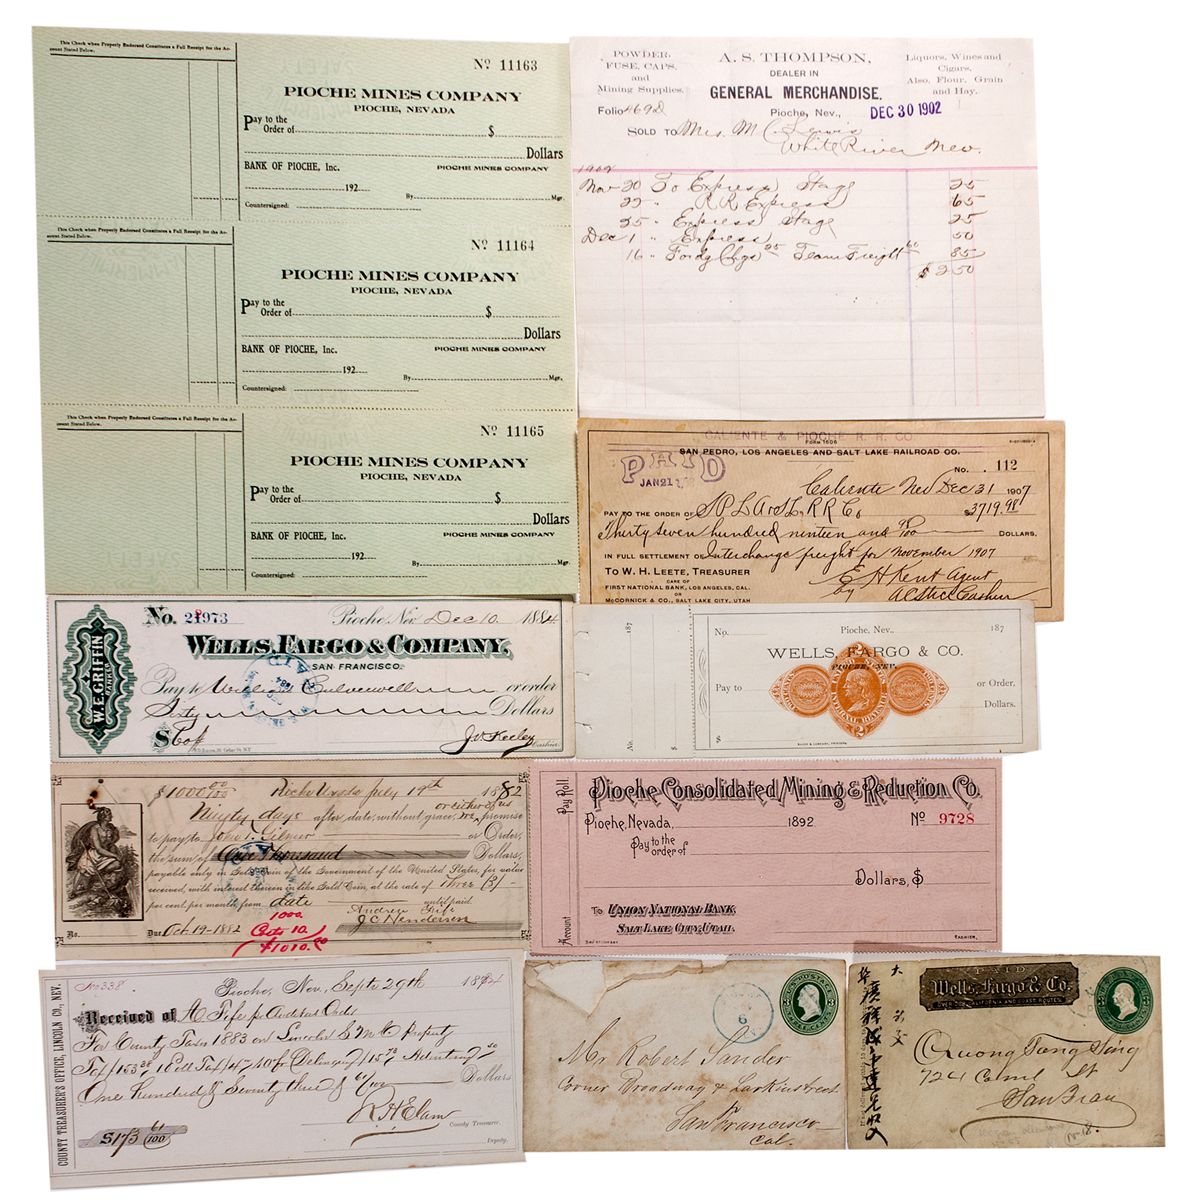 This Check when Properly Endorsed Constitutes a Full Receipt for the Ac-
count Stated Below.
Nº 11163
PIOCHE MINES COMPANY
PIOCHE, NEVADA
Pay to the
Order of $
Dollars
BANK OF PIOCHE, Inc. PIOCHE MINES COMPANY
192
Countersigned: By Mgr.
This Check when Properly Endorsed Constitutes a Full Receipt for the Ac-
count Stated Below.
Nº 11164
PIOCHE MINES COMPANY
PIOCHE, NEVADA
Pay to the
Order of $
Dollars
BANK OF PIOCHE, Inc. PIOCHE MINES COMPANY
192
Countersigned: By Mgr.
This Check when Properly Endorsed Constitutes a Full Receipt for the Ac-
count Stated Below.
Nº 11165
PIOCHE MINES COMPANY
PIOCHE, NEVADA
Pay to the
Order of $
Dollars
BANK OF PIOCHE, Inc. PIOCHE MINES COMPANY
192
Countersigned: By Mgr.
POWDER,
FUSE, CAPS,
and
Mining Supplies.
A. S. THOMPSON,
DEALER IN
GENERAL MERCHANDISE.
Liquors, Wines and
Cigars.
Also, Flour, Grain
and Hay.
Folio 469
Pioche, Nev., DEC 30 1902
SOLD TO Mrs. M C. Lewis
White River Nev.
1902
Nov 20 To Express Stage 25
22 " R R Express 65
25 " Express Stage 25
Dec 1 " Express 50
16 " Fordg Chgs 25 Team Freight 60 85
$2.50
CALIENTE & PIOCHE R. R. CO.
FORM 1606
SAN PEDRO, LOS ANGELES AND SALT LAKE RAILROAD CO.
PAID
JAN 21
No. 112
Caliente Nev Dec 31 1907
PAY TO THE ORDER OF S P L A & S L R R Co $3719.98
Thirty seven hundred nineteen and 98/100 DOLLARS.
IN FULL SETTLEMENT OF Interchange freight for November 1907
TO W. H. LEETE, TREASURER
CARE OF
FIRST NATIONAL BANK, LOS ANGELES, CAL.
OR
McCORNICK & CO., SALT LAKE CITY, UTAH
E H Kent Agent
by Cashier
W. E. GRIFFIN
No. 21973 Pioche, Nev. Dec 10 1884
WELLS, FARGO & COMPANY,
SAN FRANCISCO.
PAID
Pay to William Culverwell or order
Sixty Dollars
$60
J. W. Keeley
Cashier
187
No.
$
No. Pioche, Nev., 187
WELLS, FARGO & CO.
PIOCHE, NEV.
Pay to or Order.
Dollars.
$
2
$1000 00/100 Pioche July 19th 1882
or either of us
Ninety days after date, without grace, we promise
to pay to John F. Gilmer or Order,
the sum of One Thousand Dollars,
payable only in Gold Coin of the Government of the United States, for value
received, with interest thereon in like Gold Coin, at the rate of Three (3)
per cent. per month from date until paid
PAID
Andrew Fife
J C Henderson
No. Due Oct 19-1882
1000.
$1010.00
Pay Roll
Account
Pioche Consolidated Mining & Reduction Co.
Pioche, Nevada, 1892 Nº 9728
Pay to the
order of
Dollars, $
To UNION NATIONAL BANK,
SALT LAKE CITY, UTAH.
CASHIER.
COUNTY TREASURER'S OFFICE, LINCOLN CO., NEV.
No 338 Pioche, Nov, Sept 29th 1884
Received of A. Fife
For County Taxes 1883 on Lincoln Property
One Hundred & Seventy three & 61/100 Dollars
$173 61/100
R H Elam
County Treasurer.
Deputy.
U.S. POSTAGE
THREE CENTS
6
Mr Robert Sander
Corner Broadway & Larkin street
San Francisco
Cal.
PAID
Wells, Fargo & Co.
OVER OUR CALIFORNIA AND COAST ROUTES.
Quong Tung Sing
724 Coml St
San Fran